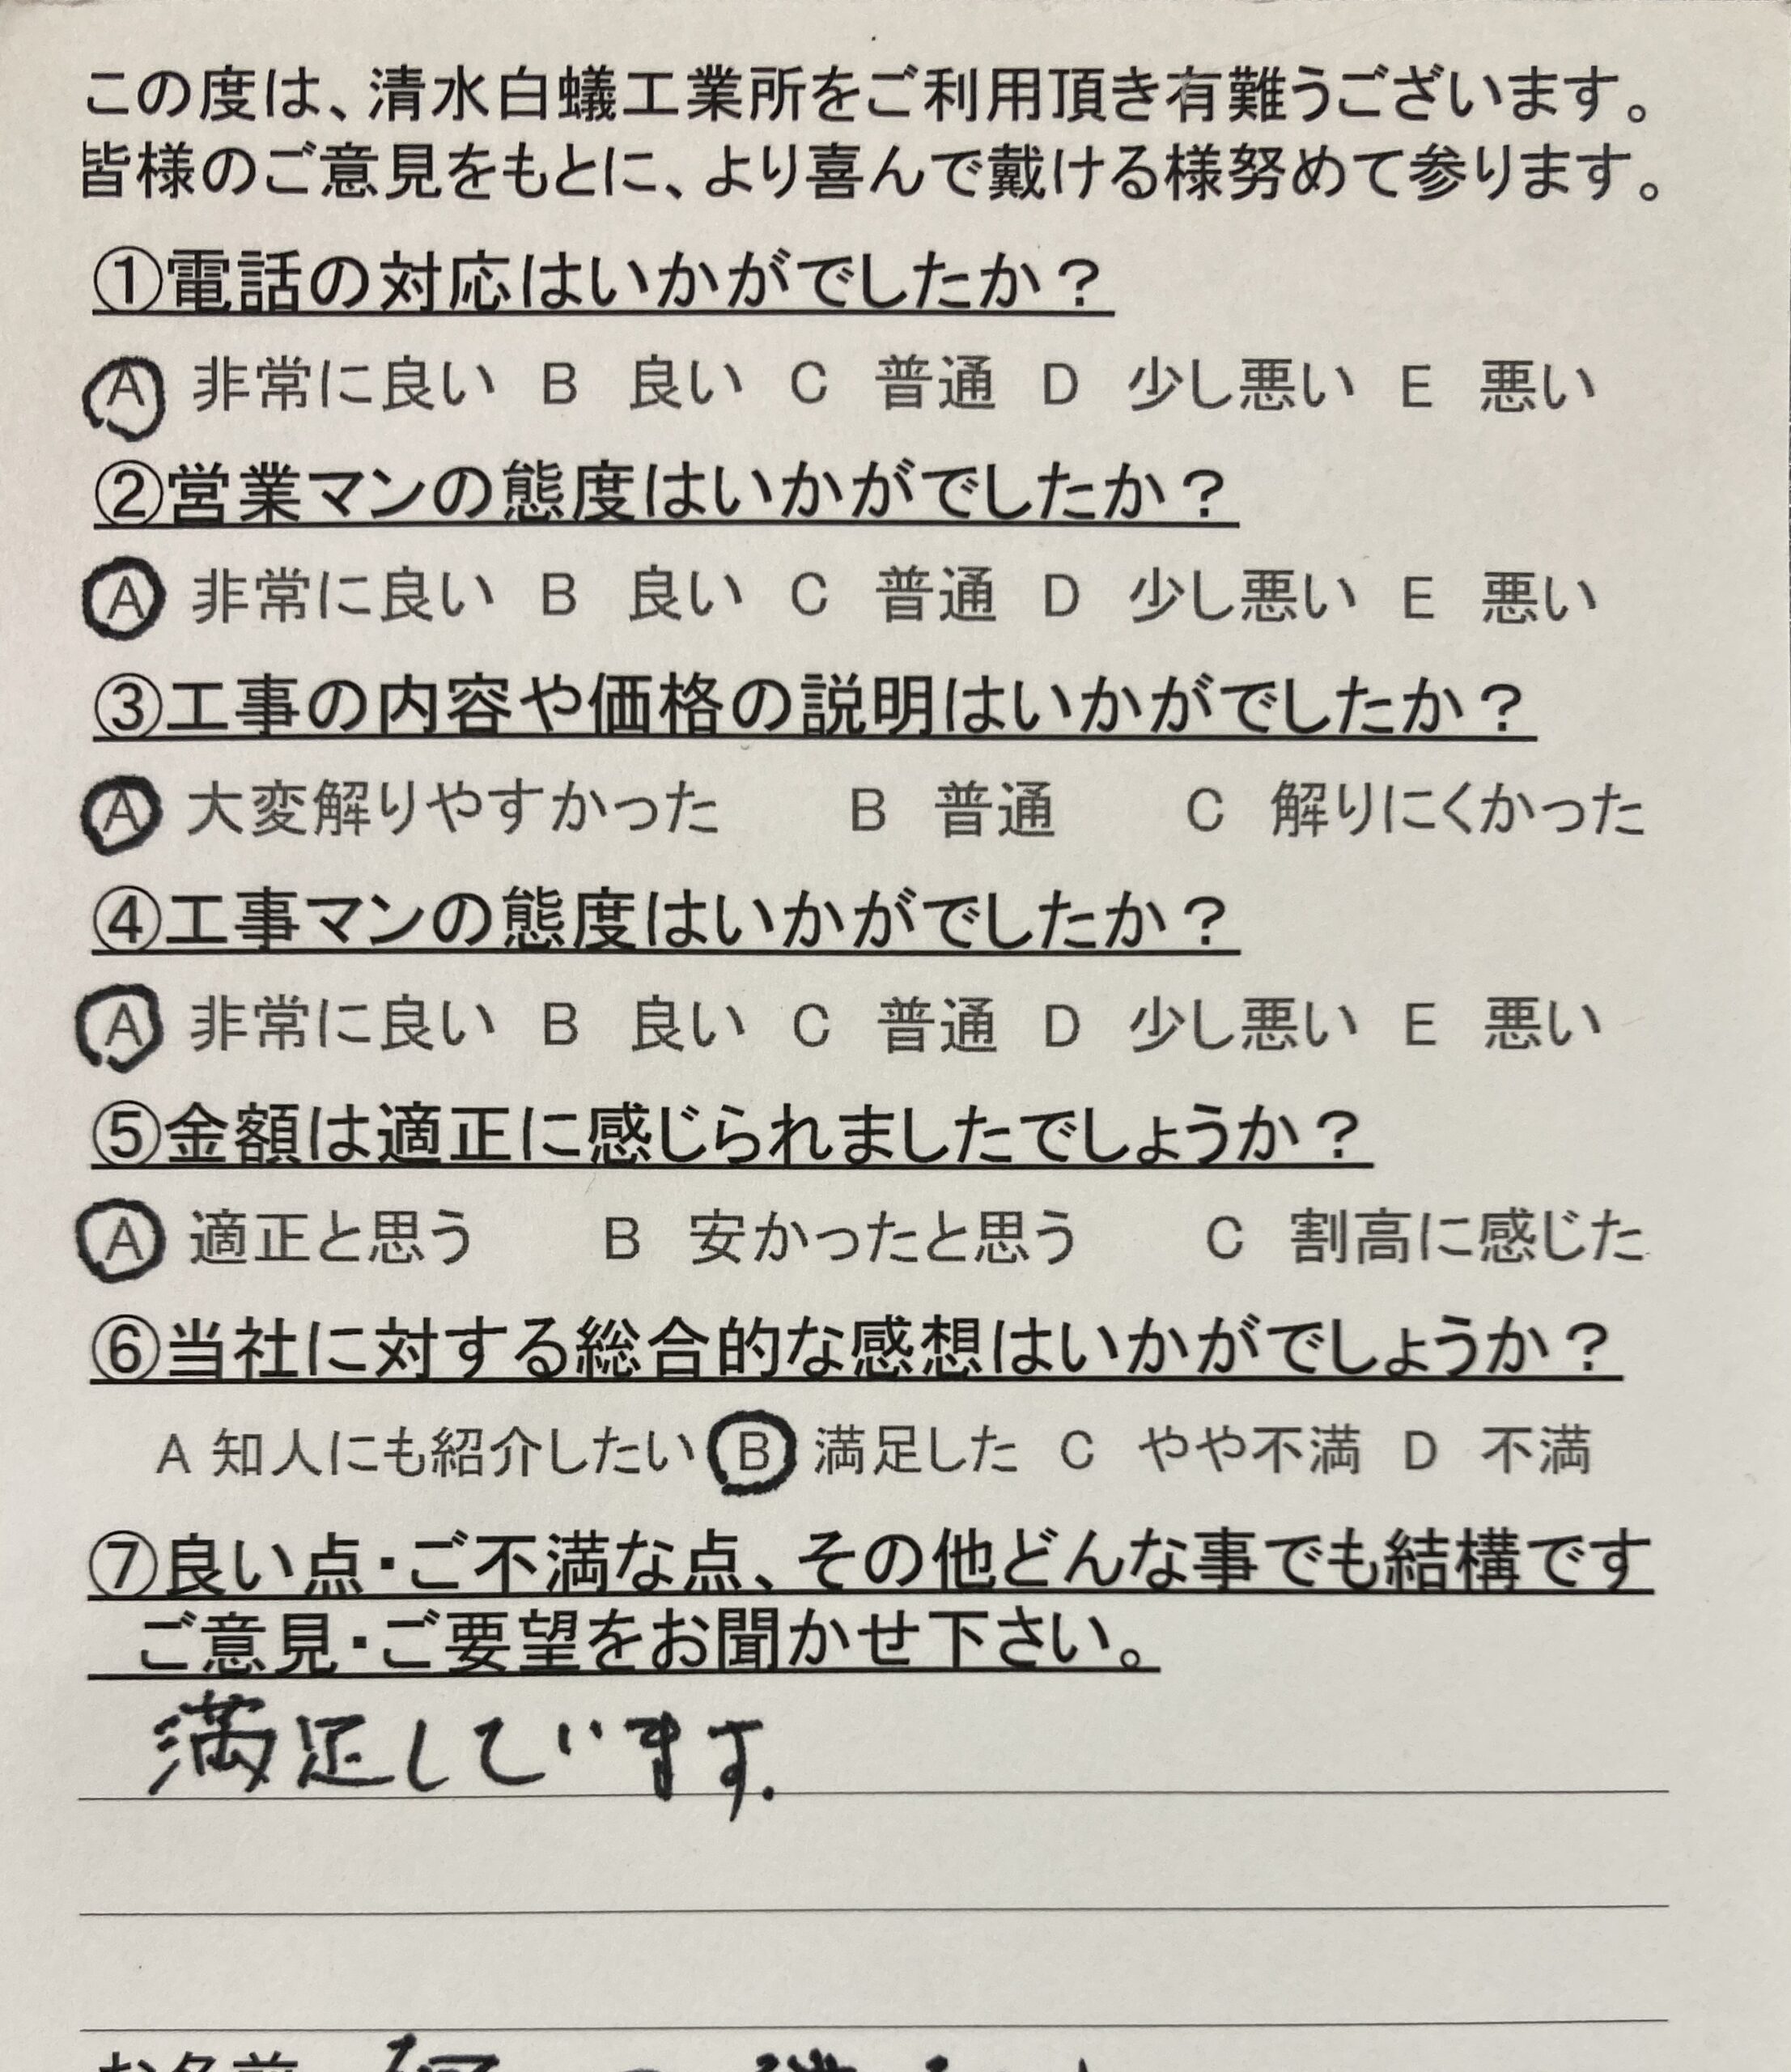 この度は、清水白蟻工業所をご利用頂き有難うございます。
皆様のご意見をもとに、より喜んで戴ける様努めて参ります。
①電話の対応はいかがでしたか？
A 非常に良い B 良い C 普通 D 少し悪い E 悪い
②営業マンの態度はいかがでしたか？
A 非常に良い B 良い C 普通 D 少し悪い E 悪い
③工事の内容や価格の説明はいかがでしたか？
A 大変解りやすかった B 普通 C 解りにくかった
④工事マンの態度はいかがでしたか？
A 非常に良い B 良い C 普通 D 少し悪い E 悪い
⑤金額は適正に感じられましたでしょうか？
A 適正と思う B 安かったと思う C 割高に感じた
⑥当社に対する総合的な感想はいかがでしょうか？
A 知人にも紹介したい B 満足した C やや不満 D 不満
⑦良い点・ご不満な点、その他どんな事でも結構です
ご意見・ご要望をお聞かせ下さい。
満足しています.
お名前